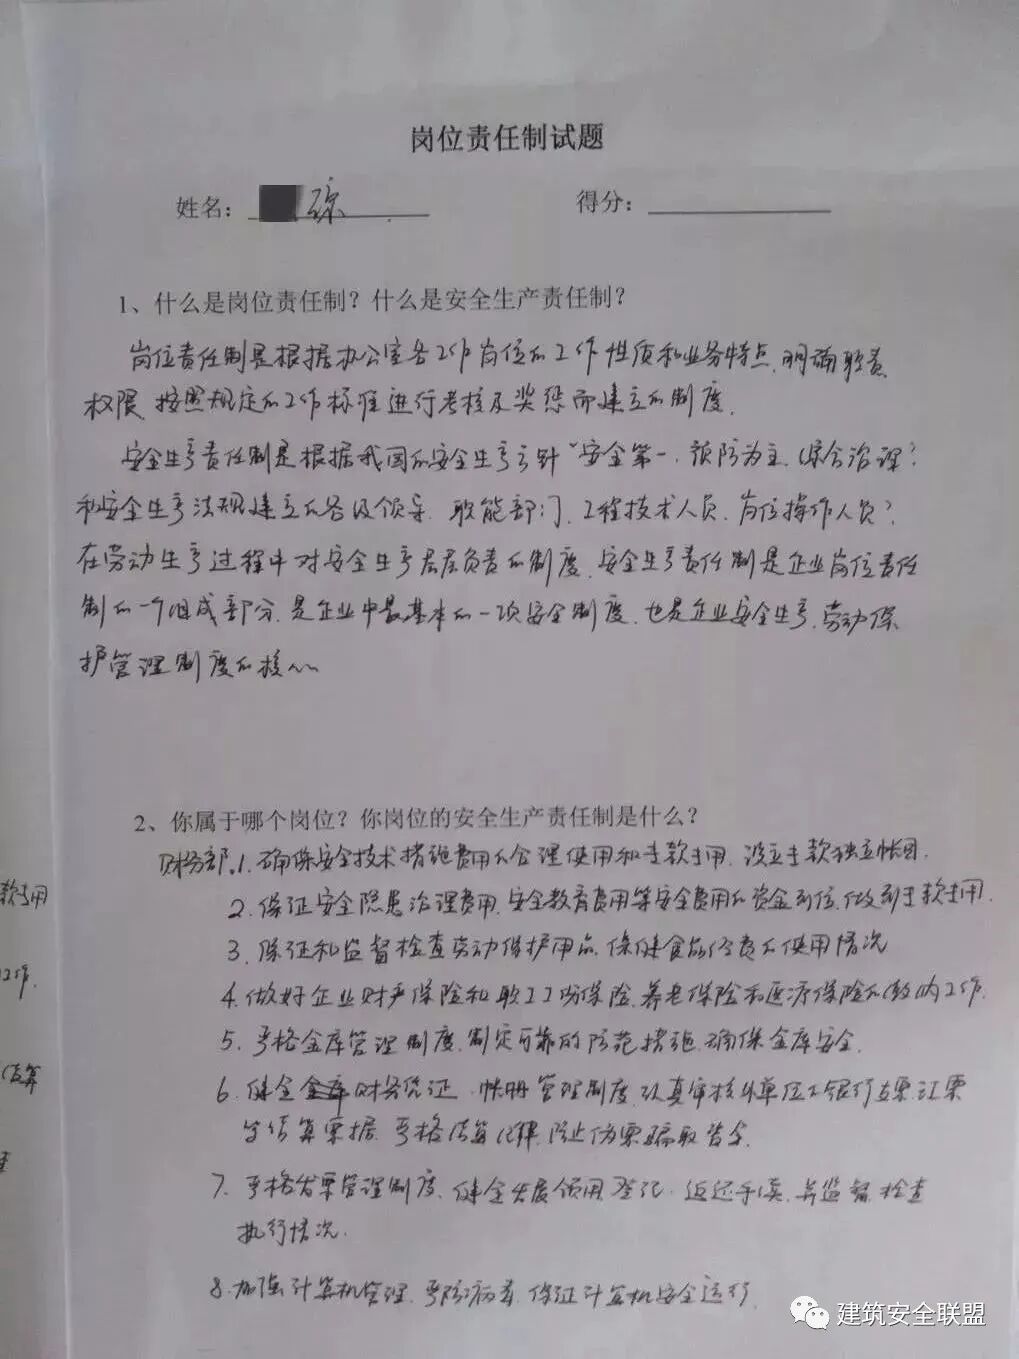 岗位责任制试题
姓名：琼 得分：
1、什么是岗位责任制？什么是安全生产责任制？
岗位责任制是根据办公室各工作岗位的工作性质和业务特点，明确职责、
权限、按照规定的工作标准进行考核及奖惩而建立的制度。
安全生产责任制是根据我国的安全生产方针“安全第一、预防为主、综合治理”
和安全生产法规建立的各级领导、职能部门、工程技术人员、岗位操作人员
在劳动生产过程中对安全生产层层负责的制度。安全生产责任制是企业岗位责任
制的一个组成部分，是企业中最基本的一项安全制度，也是企业安全生产、劳动保
护管理制度的核心
2、你属于哪个岗位？你岗位的安全生产责任制是什么？
财务部。1. 确保安全技术措施费用的合理使用和专款专用，设立专款独立帐
2. 保证安全隐患治理费用、安全教育费用等安全费用的资金到位，做到专款专用。
3. 保证和监督检查劳动保护用品、保健食品经费的使用情况
4. 做好企业财产保险和职工工伤保险、养老保险和医疗保险的缴纳工作。
5. 严格金库管理制度，制定可靠的防范措施，确保金库安全。
6. 健全财务凭证、帐册管理制度，认真审核外单位的银行支票、汇票
等结算票据，严格结算纪律，防止伪票骗取资金。
7. 严格发票管理制度，健全发票领用登记、返还手续，并监督、检查
执行情况。
8. 加强计算机管理，严防病毒，保证计算机安全运行。
款专用
工作.
结算
建筑安全联盟